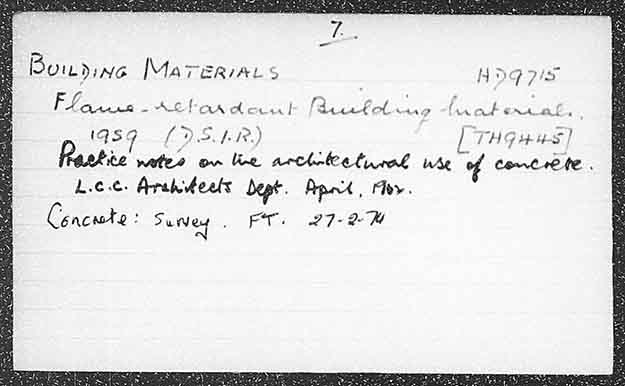 7.
BUILDING MATERIALS HD9715
Flame-retardant Building Materials.
1959 (D.S.I.R.) [TH9445]
Practice notes on the architectural use of concrete.
L.C.C. Architects Dept. April, Nov.
Concrete: Survey. FT. 27-2-74